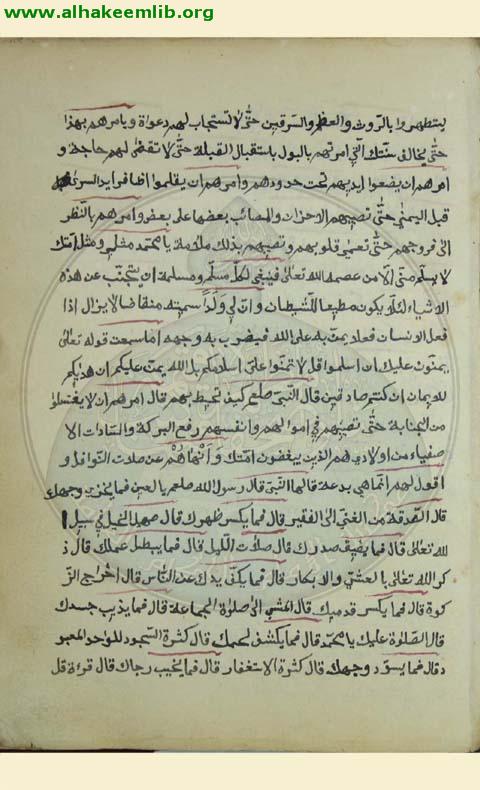 www.alhakeemlib.org
يتطهروا بالروث والعظم والسرقين حتى لا تستجاب لهم دعواة ويامرهم بهذا
حتى يخالف سنتك التي امرتهم بالبول باستقبال القبلة حتى لا تقضى لهم حاجة و
امرهم ان يضعوا ايديهم تحت خدودهم وامرهم ان يقلموا اظافر ايد
قبل اليمنى حتى تصيبهم الاحزان والمصائب بعضها على بعض وامرهم بالنظر
الى فروجهم حتى تعمى قلوبهم وتصيبهم بذلك ملامة يا محمد مثلي ومثل امتك
لا يسلم منى الا من عصمه الله تعالى فينبغي لكل مسلم ومسلمة ان يتجنب عن هذه
الاشياء لئلا يكون مطيعا للشيطان وان لي ولدا سميته متقاضا لا يزال اذا
فعل الانسان فعلا يمن به على الله فيضرب به وجهه اما سمعت قوله تعالى
يمنون عليك ان اسلموا قل لا تمنوا على اسلامكم بل الله يمن عليكم ان هديكم
للايمان ان كنتم صادقين قال النبي صلعم كيف تحيط بهم قال امرهم ان لا يغتسلوا
من الجنابة حتى تصيبهم في اموالهم وانفسهم رفع البركة والسادات الا
صفياء من اولادي هم الذين يبغضون امتك وأنهاهم عن صلات النوافل و
اقول لهم انما هي بدعة قالها النبي قال رسول الله صلعم يا لعين فما يخزي وجهك
قال الصدقة من الغني الى الفقير قال فما يكسر ظهرك قال صهيل الخيل في سبيل ا
لله تعالى قال فما يضيق صدرك قال صلات الليل قال فما يبطل عملك قال ذ
كر الله تعالى بالعشي والابكار قال فما يكف يدك عن الناس قال اخراج الز
كوة قال فما يكسر قدميك قال المشي الى صلوة الجماعة قال فما يذيب جسدك
قال الصلوة عليك يا محمد قال فما يكشف لحمك قال كثرة السجود للواحد المعبو
د قال فما يسود وجهك قال كثرة الاستغفار قال فما يخيب رجاك قال قرءة قل